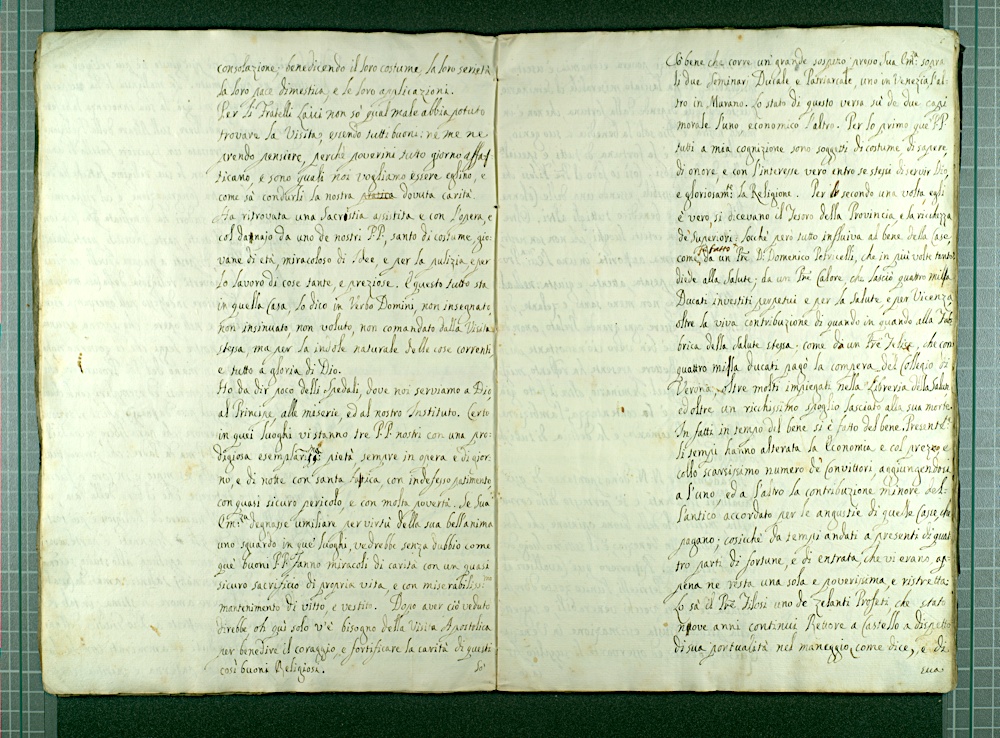 consolazione, benedicendo il loro costume, la loro serietà
la loro pace dimestica, e le loro applicazioni.
Per li Fratelli Laici non sò qual male abbia potuto
trovare la Visita, essendo tutti buoni: nè me ne
prendo pensiere, perchè poverini tutto giorno affa-
ticano, e sono quali noi vogliamo essere eglino, e
come sà condurli la nostra pratica dovuta carità
Hà ritrovata una Sacristia assistita e con l'opera, e
col danajo da uno de nostri PP., santo di costume, gio-
vane di età, miracoloso di Idee, e per la pulizia e per
lo lavoro di cose tante, e preziose. E questo tutto sta
in quella Casa, lo dico in Verbo Domini, non insegnato,
non insinuato, non voluto, non comandato dalla Visita
stessa, ma per la indole naturale delle cose correnti
e tutto à gloria di Dio.
Ho da dir poco delli Spedali, dove noi serviamo a Dio
al Principe, alle miserie, ed al nostro Instituto. Certo
in quei luoghi vi stanno tre PP. nostri con una pro-
digiosa pietà sempre in opera e di gior-
no, e di notte con santa fatica, con indefesso patimento
con quasi sicuro pericolo, e con molta povertà. Se Sua
Em.za degnasse umiliare per virtù della sua bell'anima
uno sguardo in que' luoghi, vedrebbe senza dubbio come
que' buoni PP. fanno miracoli di carità con un quasi
sicuro sacrificio di propria vita, e con
mantenimento di vitto, e vestito. Dopo aver ciò veduto
direbbe, oh quì solo v'è bisogno della Visita Apostolica
per benedire il coraggio, e fortificare la carità di questi
così buoni Religiosi.
So'
Sò bene che corre un grande sospiro presso Sua Em.za sopra
li due Seminari Ducale e Patriarcale, uno in Venezia l'al-
tro in Murano. Lo stato di questo versa sù de due capi
morale l'uno, economico l'altro. Per lo primo que' PP.
tutti a mia cognizione sono soggetti di costume, di sapere,
di onore, e con l'interesse vero entro se stessi di servir Dio,
e gloriosam.te la Religione. Per lo secondo una volta egli
è vero, si dicevano il Tesoro della Provincia, e la ricchezza
de' Superiori: locchè però tutto influiva al bene della Case,
come fu fatto da un Pre D. Domenico Petricelli, che in più volte tanto
diede alla Salute; da un Pre Calore, che lasciò quattro milla
Ducati investiti perpetui e per la Salute e per Vicenza
oltre la viva contribuzione di quando in quando alla Fab-
brica della Salute stessa: come da un Pre che con
quattro milla ducati pagò la compera del Collegio di
Verona, oltre molti impiegati nella Libreria della Salute
ed oltre un ricchissimo spoglio lasciato alla sua morte.
In fatti in tempo del bene si è fatto del bene. Presente
li tempi hanno alterata la Economia e col prezzo, e
collo scarsissimo numero de' Convittori, aggiungendosi
a l'uno, ed a l'altro la contribuzione minore dell'
l'antico accordato per le angustie di quelle Case, che
pagano; cosicchè da tempi andati a presenti di quat-
tro parti di fortune, e di entrata, che vi erano, ap-
pena ne resta una sola e poverissima, e ristretta.
Lo sà il Pre Filosi uno de' zelanti Profeti che stato
nove anni continui Rettore a Castello a dispetto
di sua puntualità nel maneggio, come dice, e di